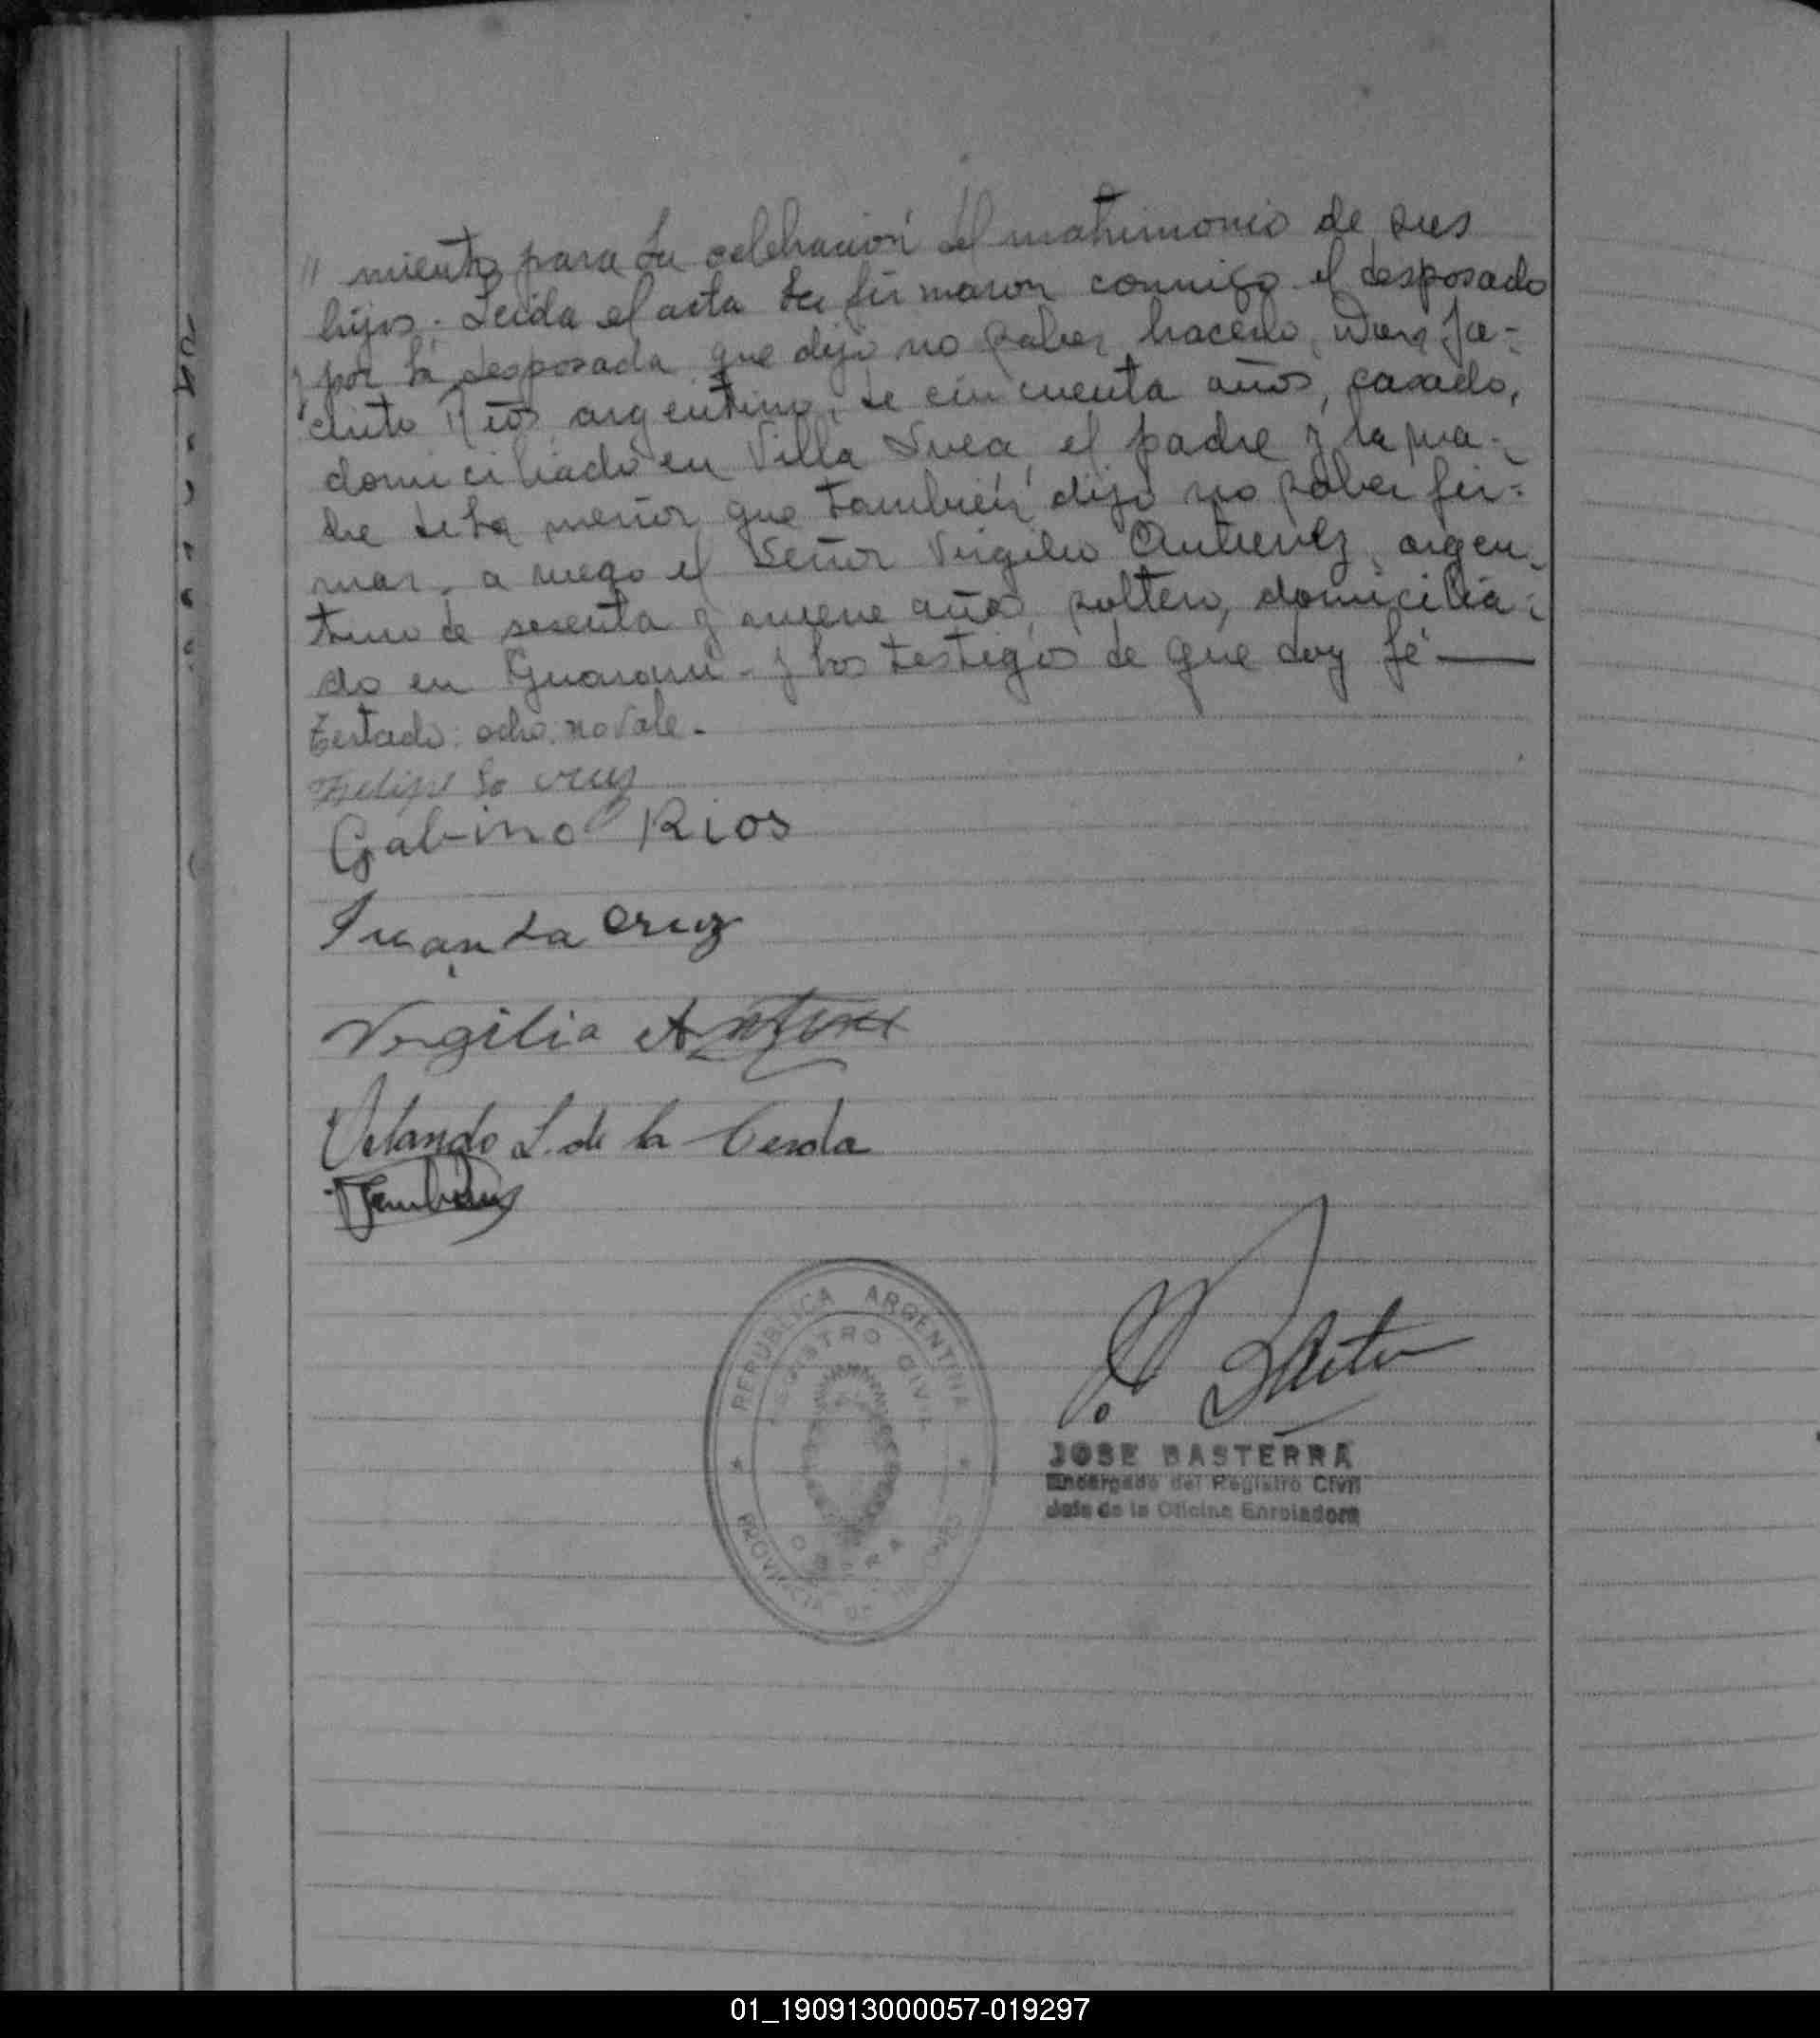 " miento para la celebración del matrimonio de sus
hijos. Leida el acta la firmaron conmigo el desposado
y por la desposada que dijo no saber hacerlo, Don Ja-
cinto Rios, argentino, de cincuenta años, casado,
domiciliado en Villa Svea, el padre y la ma-
dre de la menor que también dijo no saber fir-
mar, a ruego el Señor Virgilio Antunez, argen-
tino de sesenta y nueve años, soltero, domicilia-
do en Guaraní - y los testigos de que doy fé —
Testado: ocho: no vale.-
Felipe La cruz
Gabino Rios
Juan La Cruz
Vergilia
Orlando L. de la Cerda
REPUBLICA ARGENTINA
REGISTRO CIVIL
OBERA
PROVINCIA DE MISIONES
JOSE BASTERRA
Encargado del Registro Civil
Jefe de la Oficina Enroladora
01_190913000057-019297